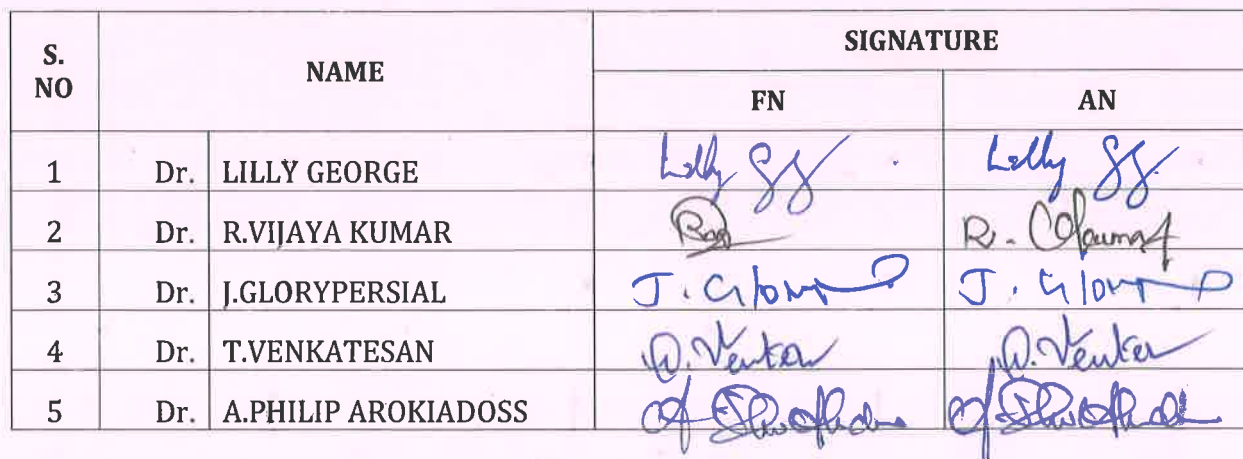 S. NO NAME SIGNATURE
FN AN
1 Dr. LILLY GEORGE Lilly Lilly
2 Dr. R.VIJAYA KUMAR R.
3 Dr. J.GLORYPERSIAL J. Glory J. Glory
4 Dr. T.VENKATESAN
5 Dr. A.PHILIP AROKIADOSS